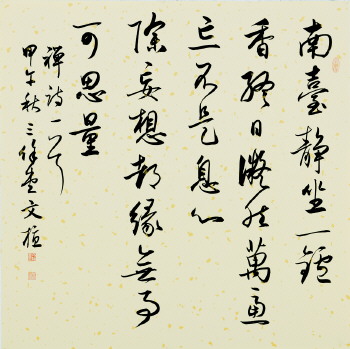 南臺静坐一鑪
香終日凝然萬慮
亡不是息心
除妄想都緣無事
可思量
禪詩一首
甲午秋三